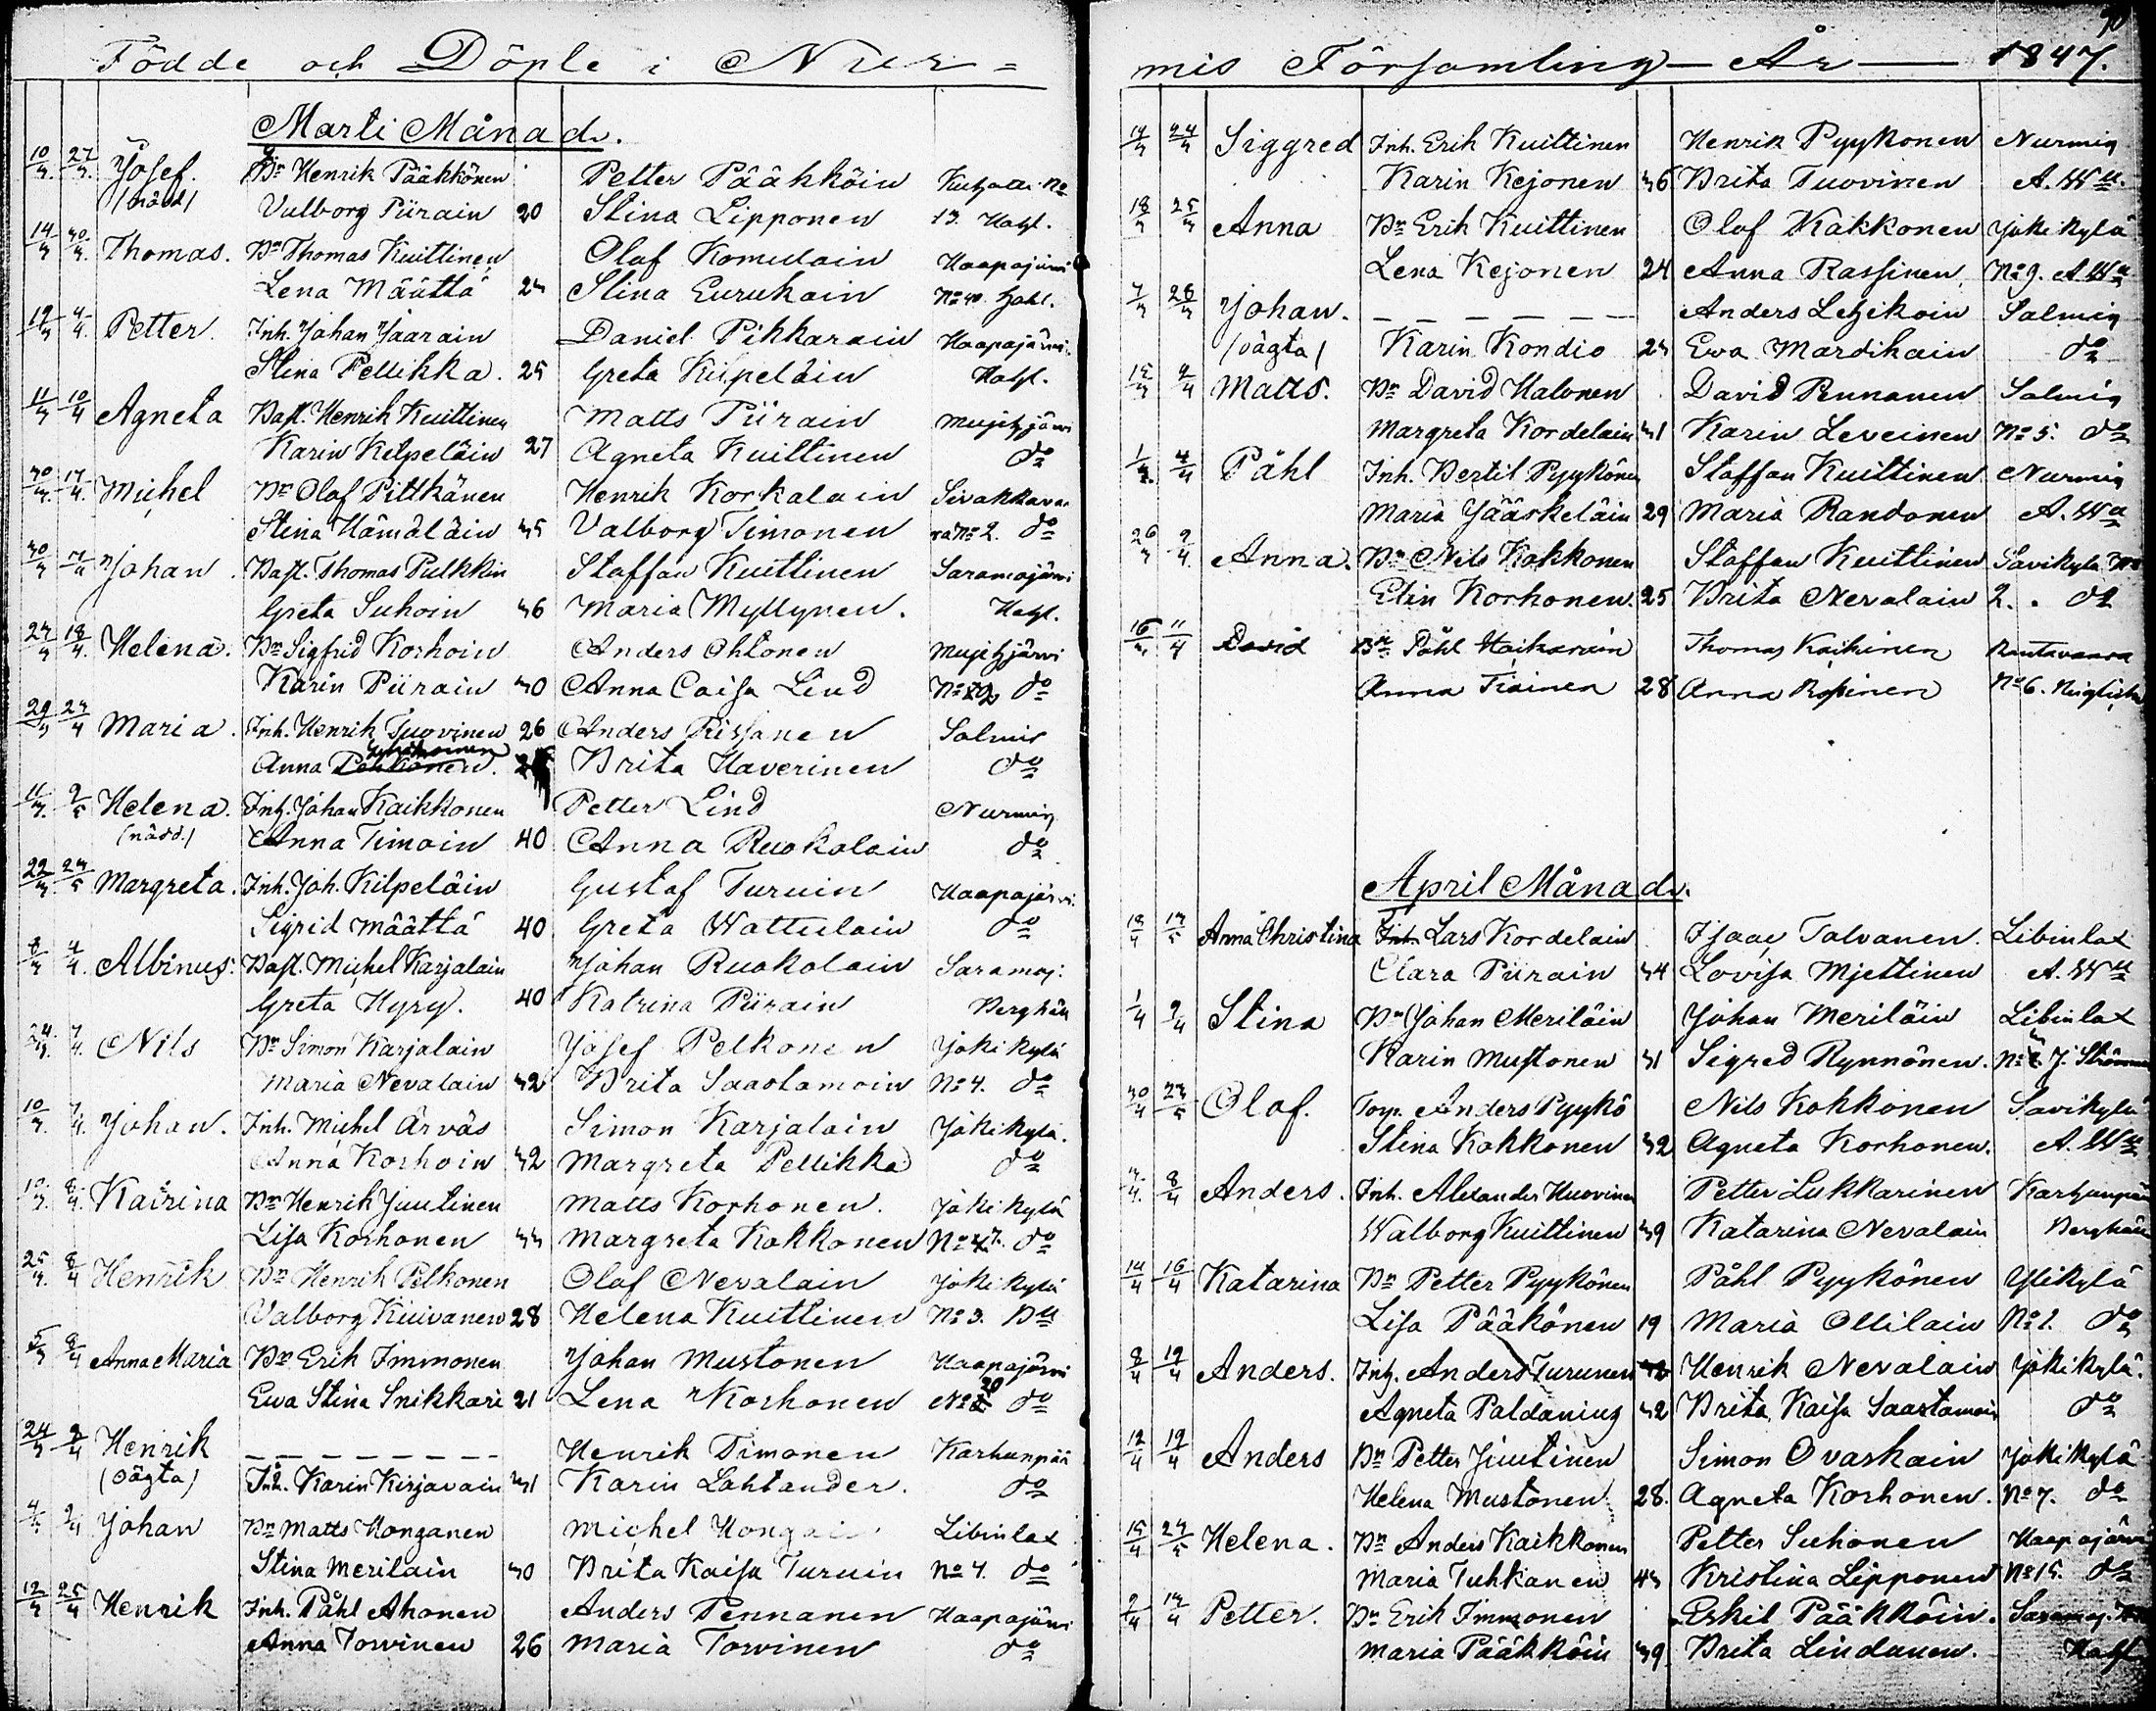 Födde och Döpte i Nur=
Marti Månad.
10/3 27/3 Josef. Bn Henrik Pääkkönen Petter Pääkköin No
(nödd) Valborg Piirain 20 Stina Lipponen 13. Hagl.
14/3 30/3 Thomas. Bn Thomas Kuittinen Olof Komulain Haapajärvi
Lena Määttä 23 Stina Eurukain No 40 Hagl.
19/3 4/4 Petter Inh. Johan Jaarain Daniel Pikkarain Haapajärvi
Stina Pellikka. 25 Greta Kilpeläin Hagl.
11/3 10/4 Agneta Bast. Henrik Kuittinen Matts Piirain Mujejärvi
Karin Kilpeläin 27 Agneta Kuittinen do
30/3 17/4 Michel Bn Olof Pittkänen Henrik Korkalain Sivakkava-
Stina Hämäläin 35 Valborg Timonen ra No 2. do
30/3 Johan. Bast. Thomas Pulkkin Staffan Kuittinen Saramojärvi
Greta Suhoin 36 Maria Myllynen. Hagl.
23/3 18/4 Helena. Bn Sigfrid Korhoin Anders Ohtonen Mujejärvi
Karin Piirain 30 Anna Caisa Lind No do
29/3 23/4 Maria. Inh. Henrik Tuovinen 26 Anders Rissanen Salmis
Anna Brita Haverinen do
11/3 2/5 Helena. Inh. Johan Kaikkonen Petter Lind Nurmis
(nödd.) Anna Timoin 40 Anna Ruokolain do
22/3 23/5 Margreta. Inh. Joh. Kilpeläin Gustaf Turuin Haapajärvi
Sigrid Määttä 40 Greta Wattulain do
8/3 4/4 Albinus. Bast. Michel Karjalain Johan Ruokolain Saramoj:
Greta Hyry. 40 Katrina Piirain Berghäll
24/3 7/4 Nils Bn Simon Karjalain Josef Pelkonen Jokikylä
Maria Nevalain 32 Brita Saastamoin No 4. do
10/3 7/4 Johan. Inh. Michel Ärväs Simon Karjalain Jokikylä.
Anna Korhoin 32 Margreta Pellikka do
10/3 8/4 Katrina Bn Henrik Juutinen Matts Korhonen. Jokikylä
Lisa Korhonen 33 Margreta Kokkonen No 7. do
25/3 8/4 Henrik Bn Henrik Pelkonen Olof Nevalain Jokikylä
Valborg Kuivanen 28 Helena Kuittinen No 3.
5/3 8/4 Anna Maria Bn Erik Immonen Johan Mustonen Haapajärvi
Ewa Stina Snikkari 21 Lena Korhonen No 20 do
24/3 9/4 Henrik — — — — — — Henrik Timonen Karhunpää
(oägta) Inh. Karin Kirjavain 31 Karin Lahtander. do
4/3 9/4 Johan Bn Matts Honganen Michel Libinlax
Stina Merilain 30 Brita Kaisa Turuin No 4. do
12/3 25/4 Henrik Inh. Påhl Ahonen Anders Pennanen Haapajärvi
Anna Torvinen 26 Maria Torvinen do
mis Församling — År — 1847.
14/3 24/3 Siggred Inh. Erik Kuittinen Henrik Pyykönen Nurmis
Karin Kejonen 36 Brita Tuovinen A. Wll.
18/3 25/3 Anna Bn Erik Kuittinen Olof Kakkonen Jokikylä
Lena Kejonen 24 Anna Rassinen No 9. A. Wll
7/3 26/3 Johan. — — — — — — Anders Letzikoin Salmis
(oägta) Karin Kondio 23 Ewa Mardikain do
15/3 9/4 Matts. Bn David Halonen David Pennanen Salmis
Margreta Kordelain 31 Karin Leveinen No 5. do
1/3 4/4 Påhl Inh. Bertil Pyykönen Staffan Kuittinen Nurmis
Maria Jääskeläin 29 Maria Randonen A. Wll
26/3 9/4 Anna. Bn Nils Kokkonen Staffan Kuittinen Savikylä No
Elin Korhonen. 25 Brita Nevalain 2. do
16/3 11/4 David Bn Påhl Haikarain Thomas Kaikinen Rautavaara
Anna Tiainen 28 Anna Rossinen No 6.
April Månad.
18/4 13/5 Anna Christina Inh. Lars Kordelain Isaac Talvanen. Libinlax
Clara Piirain 34 Lovisa Mjettinen A. Wll
1/4 9/4 Stina Bn Johan Meriläin Johan Meriläin Libinlax
Karin Mustonen 31 Sigred Rynnönen. No J. Strömm
30/4 23/5 Olof. Torp. Anders Pyykö Nils Kokkonen Savikylä
Stina Kokkonen 32 Agneta Korhonen. A. Wll
3/4 8/4 Anders. Inh. Alexander Huovinen Petter Lukkarinen Karhunpää
Walborg Kuittinen 39 Katarina Nevalain Berghäll
14/4 16/4 Katarina Bn Petter Pyykönen Påhl Pyykönen Ylikylä
Lisa Pääkönen 19 Maria Ollilain No 1. do
8/4 19/4 Anders. Inh. Anders Turunen Henrik Nevalain Jokikylä.
Agneta Paldanius 32 Brita Kaisa Saastamoin do
12/4 19/4 Anders Bn Petter Juutinen Simon Ovaskain Jokikylä
Helena Mustonen 28. Agneta Korhonen. No 7. do
15/4 23/5 Helena. Bn Anders Kaikkonen Petter Suhonen Haapajärvi
Maria Tuhkanen 43 Kristina Lipponen No 15. do
9/4 13/4 Petter. Bn Erik Immonen Eskil Pääkköin. Saramoj.
Maria Pääkköin 39 Brita Lindanen. Hagl